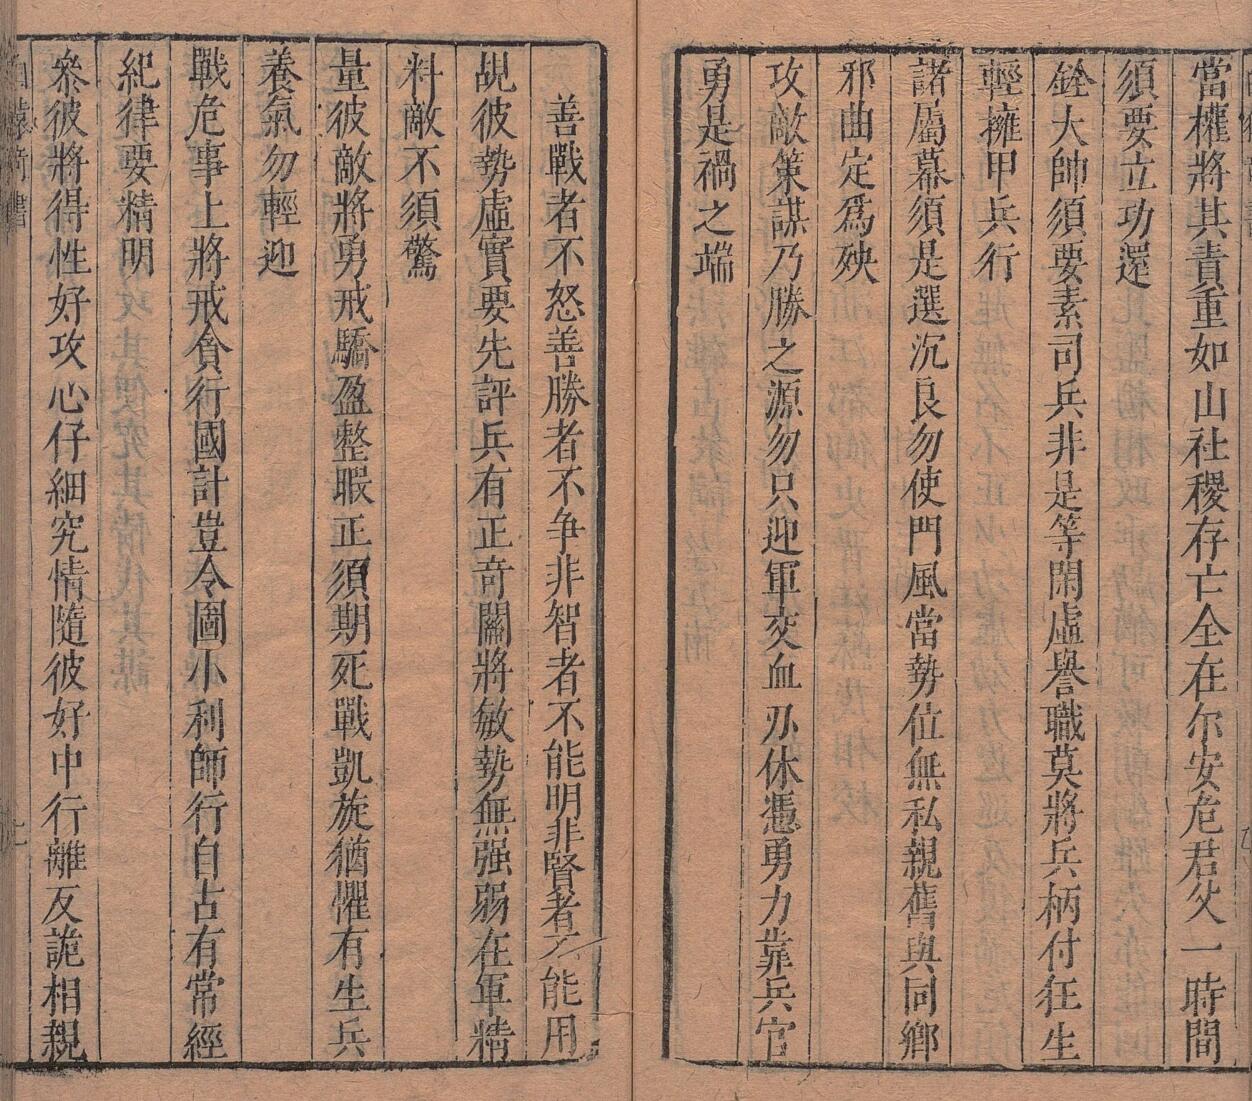 當權將其責重如山社稷存亡全在尔安危君父一時間
須要立功還
銓大帥須要素司兵非是等閑虛譽職莫將兵柄付狂生
輕擁甲兵行
諸屬幕須是選沉良勿使門風當勢位無私親舊與同鄉
邪曲定爲殃
攻敵策謀乃勝之源勿只迎軍交血刃休憑勇力靠兵官
勇是禍之端
善戰者不怒善勝者不争非智者不能明非賢者不能用
覘彼勢虛實要先評兵有正奇關將敏勢無强弱在軍精
料敵不須驚
量彼敵將勇戒驕盈整暇正須期死戰凱旋猶懼有生兵
養氣勿輕迎
戰危事上將戒貪行國計豈令圖小利師行自古有常經
紀律要精明
叅彼將得性好攻心仔細究情隨彼好中行離反詭相親